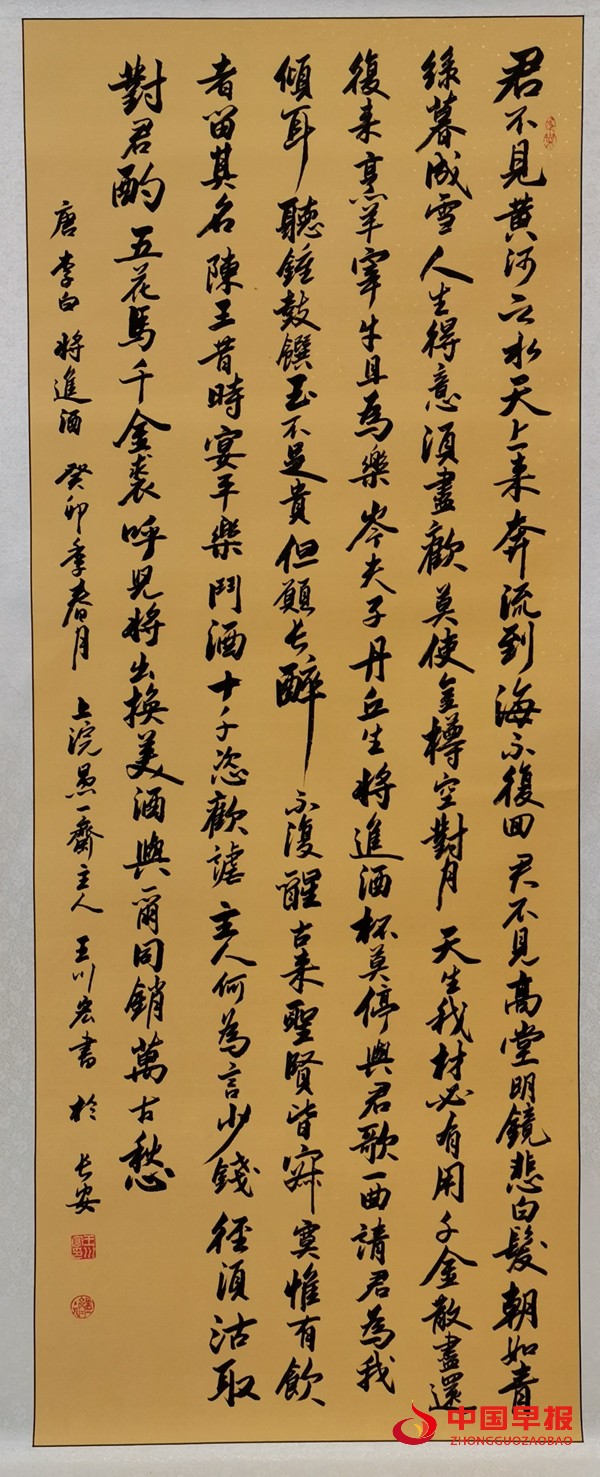 君不見黄河之水天上来奔流到海不復回君不見高堂明鏡悲白髮朝如青
絲暮成雪人生得意須盡歡莫使金樽空對月天生我材必有用千金散盡還
復来烹羊宰牛且為樂岑夫子丹丘生將進酒杯莫停與君歌一曲請君為我
傾耳聽鍾鼓饌玉不足貴但願長醉不復醒古来聖賢皆寂寞惟有飲
者留其名陳王昔時宴平樂鬥酒十千恣歡謔主人何為言少錢徑須沽取
對君酌五花馬千金裘呼兒將出換美酒與爾同銷萬古愁
唐李白將進酒癸卯季春月上浣愚一齋主人王川宏書於長安
中国早报
ZHONGGUOZAOBAO